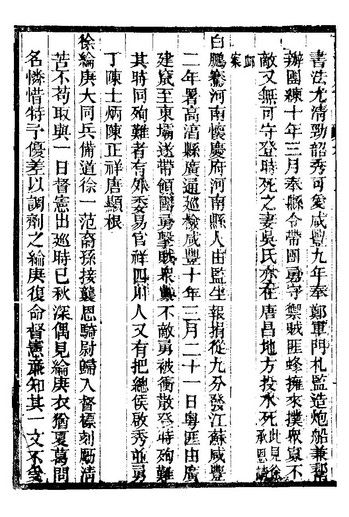 書法尤清勁韶秀可愛咸豐九年奉 鄭軍門札監造炮船兼鄰
辦團練十年三月奉縣令帶團勇守禦賊匪蜂擁來撲眾寡不
敵又無可守登時死之妻吳氏亦在唐昌地方投水死此見徐承恩請
卹案
白鵬鶱河南懷慶府河南縣人由監生報捐從九分發江蘇咸豐
二年署高淳縣廣通巡檢咸豐十年三月二十一日粵匪由廣
建竄至東壩送帶領團勇擊賊眾難不敵勇被衝散登時殉難
其時同殉難者有外委易官祥四川人又有把總侯啟秀並勇
丁陳士炳陳正祥唐顯根
徐綸庚大同兵備道徐一范裔孫接襲恩騎尉歸入督標刻勵清
苦不苟取與一日督憲出巡時已秋深偶見綸庚衣猶夏葛問
名憐惜特予優差以調劑之綸庚復命督憲稟知其一文不受